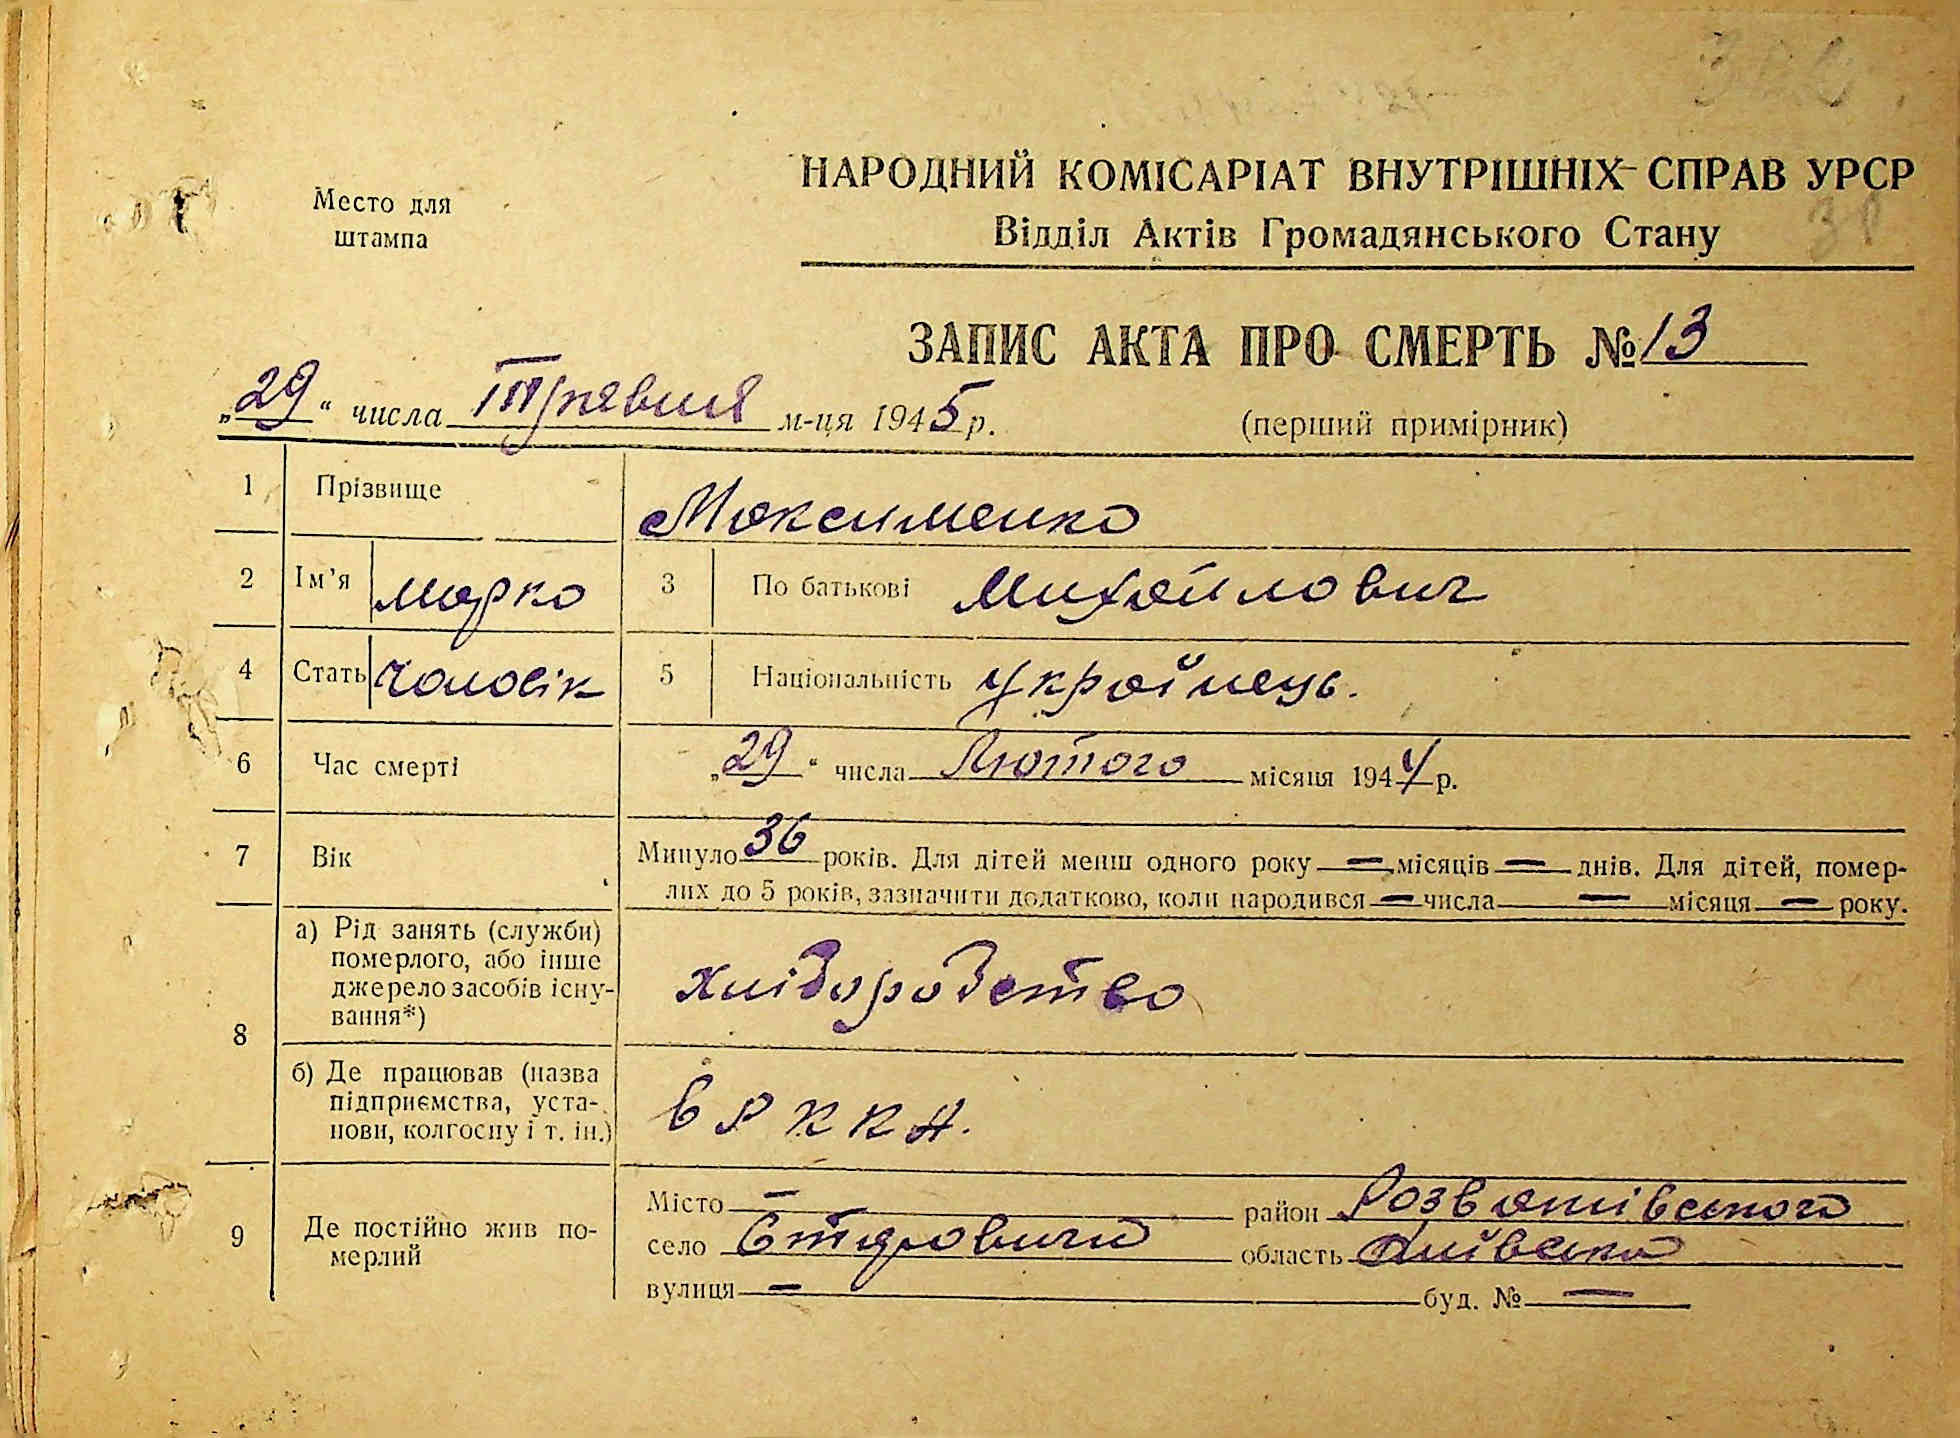 НАРОДНИЙ КОМІСАРІАТ ВНУТРІШНІХ СПРАВ УРСР
Відділ Актів Громадянського Стану
Место для
штампа
ЗАПИС АКТА ПРО СМЕРТЬ № 13
„29“ числа Травня м-ця 1945 р.
(перший примірник)
1 Прізвище Максименко
2 Ім'я Марко 3 По батькові Михайлович
4 Стать Чоловік 5 Національність Українець.
6 Час смерті „29“ числа Лютого місяця 1944 р.
7 Вік Минуло 36 років. Для дітей менш одного року — місяців — днів. Для дітей, помер-
лих до 5 років, зазначити додатково, коли народився — числа — місяця — року.
8 а) Рід занять (служби)
померлого, або інше
джерело засобів існу-
вання*)
хлібородство
б) Де працював (назва
підприємства, уста-
нови, колгоспу і т. ін.)
в РККА.
9 Де постійно жив по-
мерлий
Місто — район Розважівського
село область Київська
вулиця — буд. № —